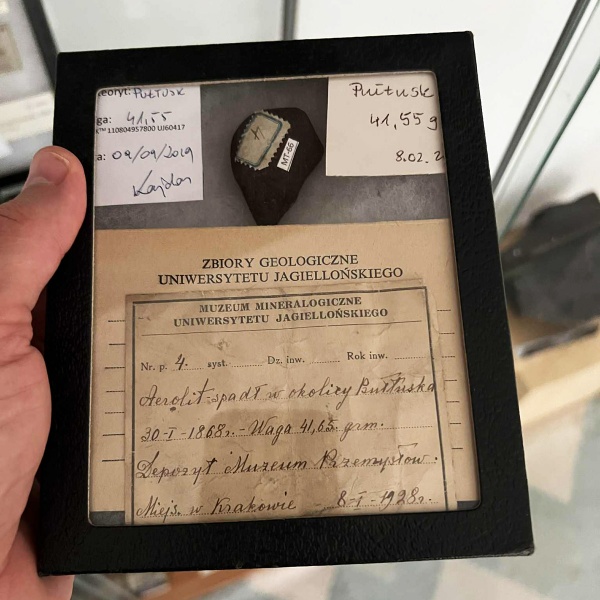 eoryt: PUŁTUSK
ga: 41,55
110804957800 UJ60417
a: 09/09/2019
Pułtusk
41,55 g
8.02. 2
4
MT-66
ZBIORY GEOLOGICZNE
UNIWERSYTETU JAGIELLOŃSKIEGO
MUZEUM MINERALOGICZNE
UNIWERSYTETU JAGIELLOŃSKIEGO
Nr. p. 4. syst. Dz. inw. Rok inw.
Aerolit spadł w okolicy Pułtuska
30-I-1868r. - Waga 41,65 grm.
Depozyt Muzeum Przemysłow.
Miejs. w Krakowie 8-I-1928r.